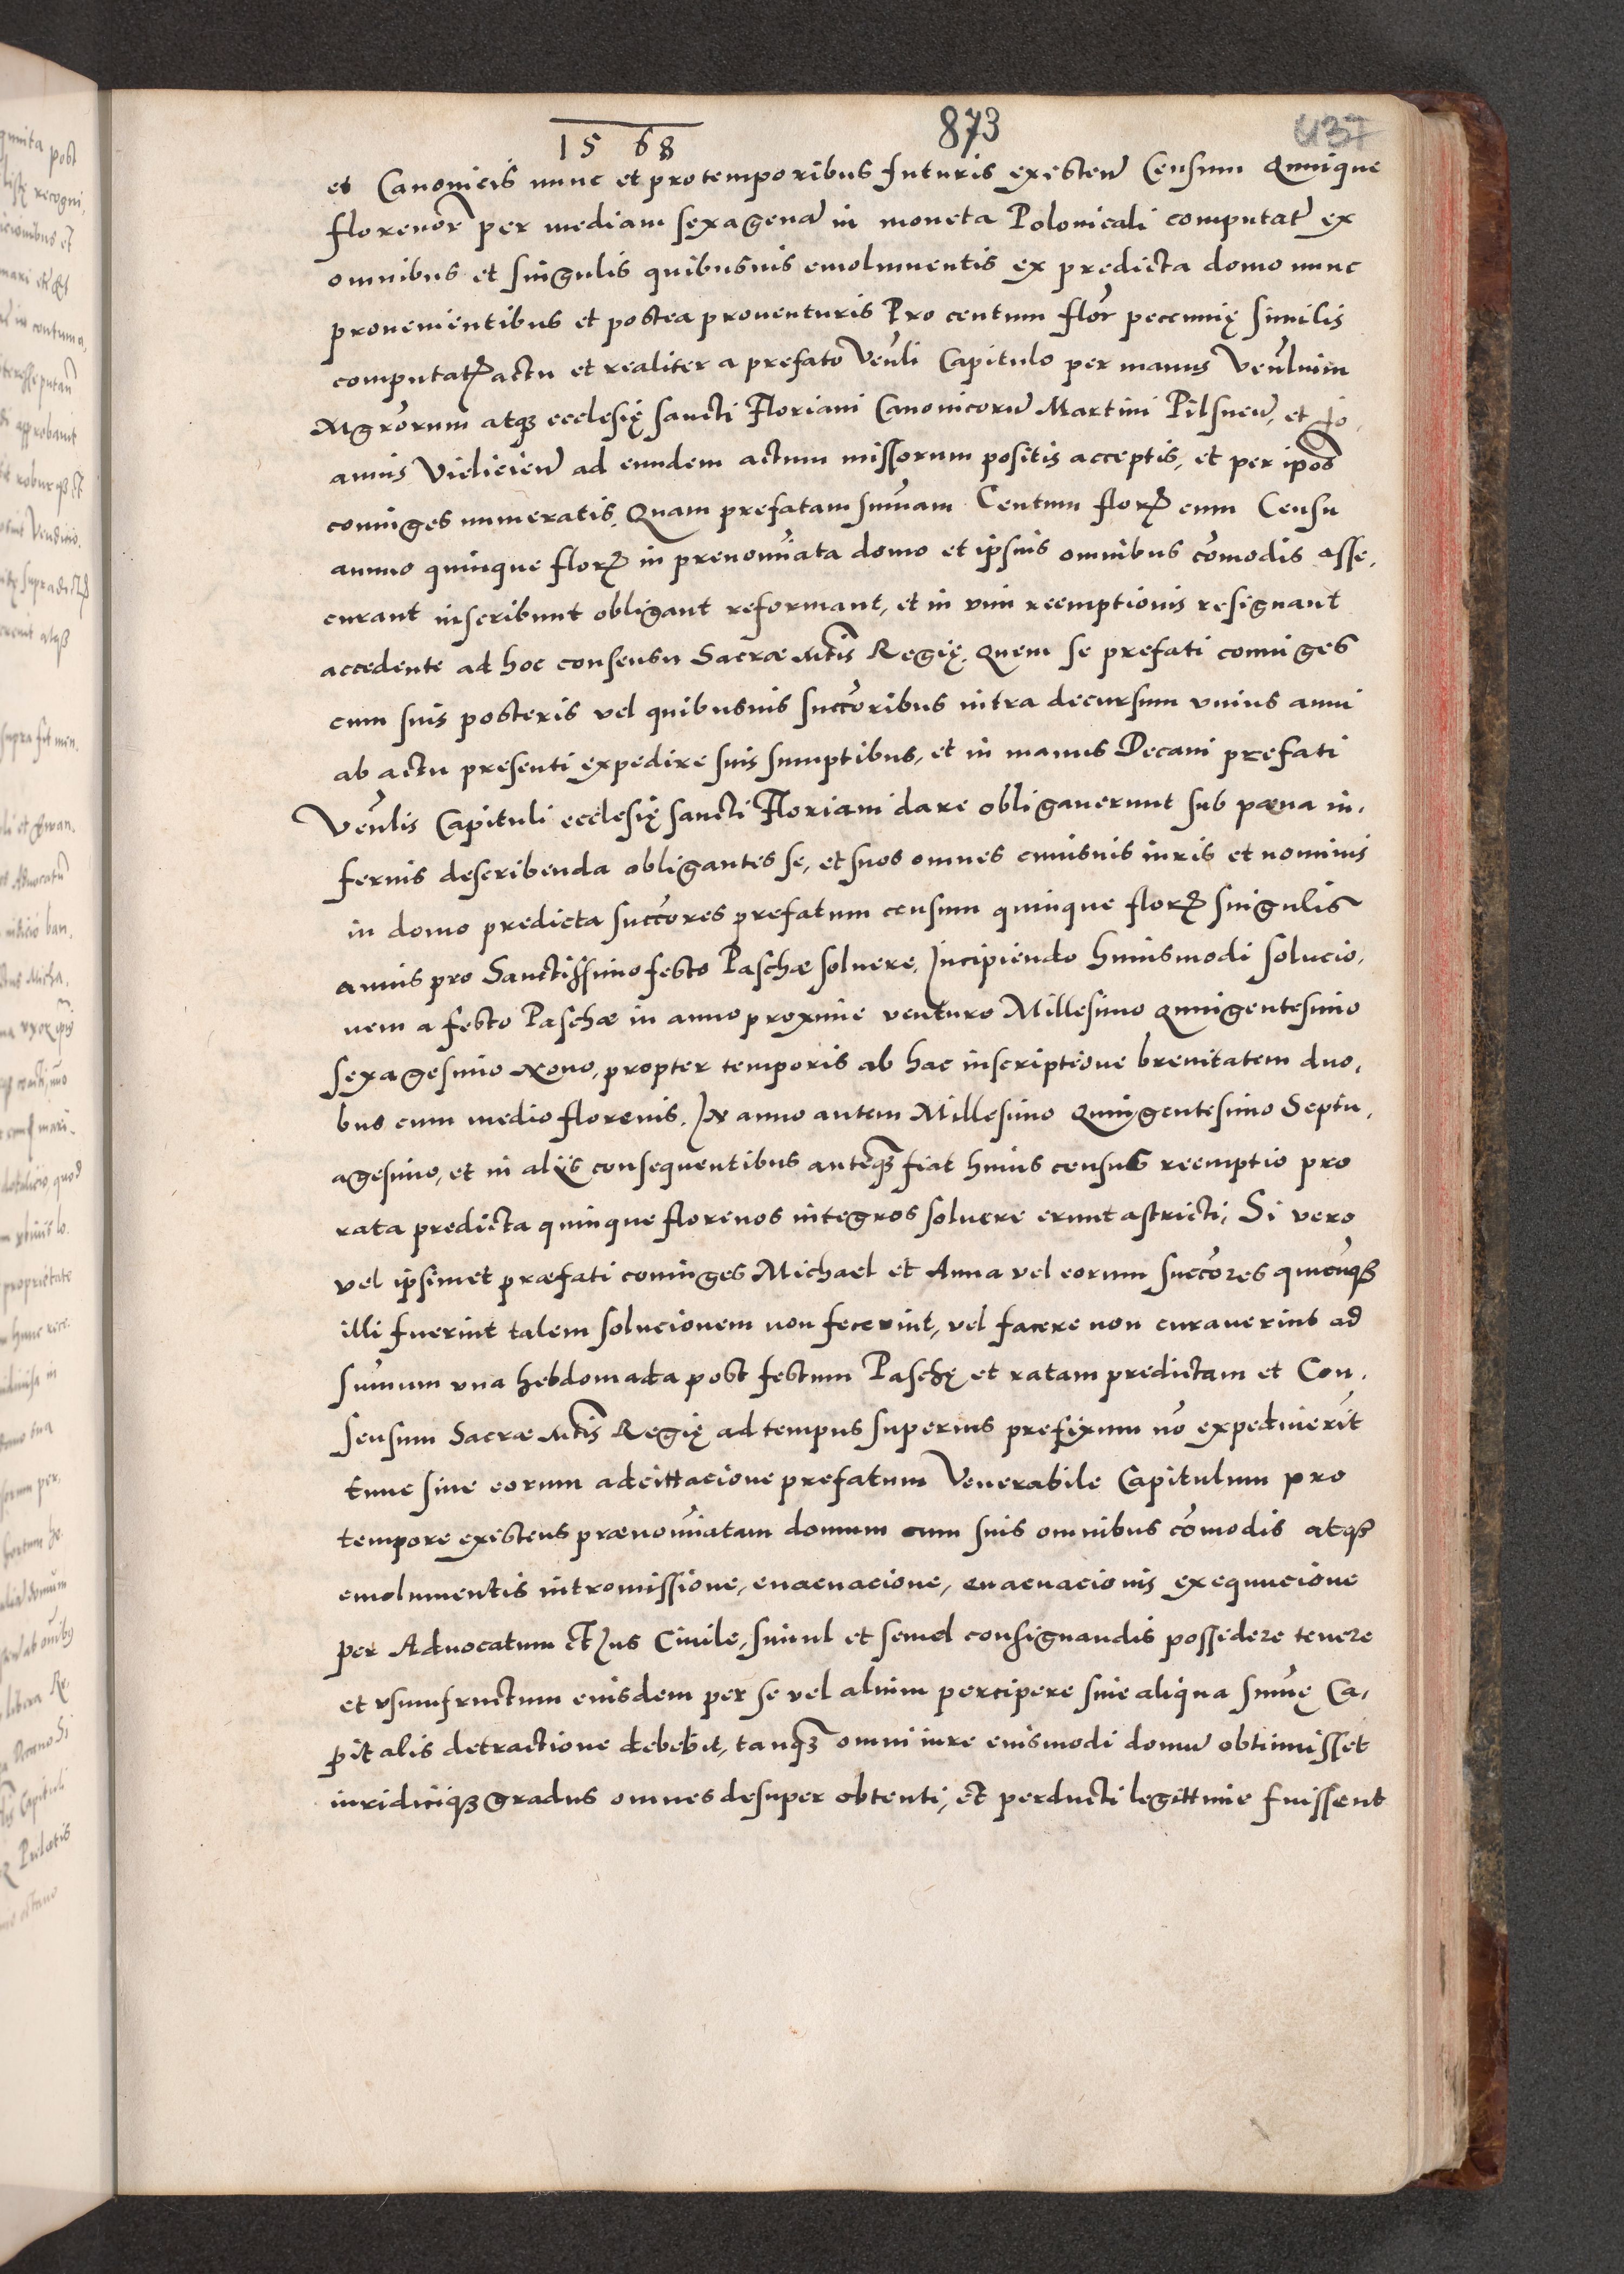 1568
873
437
et Canonicis nunc et pro temporibus futuris existen̄ Censum Quinque
florenor̄ per mediam sexagenā in moneta Polonicali computat̄ ex
omnibus et singulis quibusuis emolumentis ex predicta domo nunc
prouenientibus et postea prouenturis Pro centum flor̄ peccunię similis
computatꝝ actu et realiter a prefato Ven̄li Capitulo per manus Ven̄lium
Mgr̄orum atqꝫ ecclesię sancti Floriani Canonicorū Martini Pilsnen̄, et Jo,
annis Vielicien̄ ad eundem actum missorum positis acceptis, et per ip̄os
coniuges numeratis. Quam prefatam sum̄am Centum florꝝ cum Censu
annuo quinque florꝝ in prenomīata domo et ipsius omnibus com̄odis asse,
curant inscribunt obligant reformant, et in vim reemptionis resignant
accedente ad hoc consensu Sacræ Mt̄is Regię. Quem se prefati coniuges
cum suis posteris vel quibusuis succ̄oribus intra decursum vnius anni
ab actu presenti expedire suis sumptibus, et in manus Decani prefati
Ven̄lis Capituli ecclesię sancti Floriani dare obligauerunt sub pæna in,
ferius describenda obligantes se, et suos omnes cuiusuis iuris et nominis
in domo predicta succ̄ores prefatum censum quinque florꝝ singulis
annis pro Sanctissimo festo Paschæ soluere. Incipiendo huiusmodi solucio,
nem a festo Paschæ in anno proxime venturo Millesimo Quingentesimo
sexagesimo Nono, propter temporis ab hac inscriptione breuitatem duo,
bus cum medio florenis. In anno autem Millesimo Quingentesimo Septu,
agesimo, et in alijs consequentibus anteqꝫ fiat huius census reemptio pro
rata predicta quinque florenos integros soluere erunt astricti, Si vero
vel ipsimet præfati coniuges Michael et Anna vel eorum succ̄ores quicūqꝫ
illi fuerint talem solucionem non fecerint, vel facere non curauerint ad
sum̄um vna hebdomada post festum Paschę et ratam predictam et Con,
sensum Sacræ Mt̄is Regię ad tempus superius prefixum nō expediuerīt
tunc sine eorum adcittacione prefatum Venerabile Capitulum pro
tempore existens prænomīatam domum cum suis omnibus com̄odis atqꝫ
emolumentis intromissione, euacuacione, euacuacionis exequucione
per Aduocatum et Ius Ciuile, simul et semel consignandis possidere tenere
et vsumfructum eiusdem per se vel alium percipere sine aliqua sum̄ę Ca,
pitalis detractione debebit, tanqꝫ omni iure eiusmodi domū obtinuisset
iuridiciqꝫ gradus omnes desuper obtenti, et perducti legittime fuissent